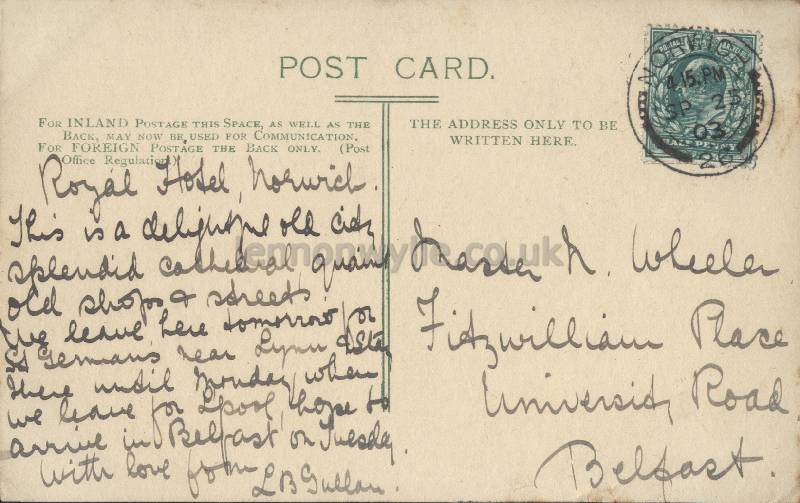 POST CARD.
FOR INLAND POSTAGE THIS SPACE, AS WELL AS THE
BACK, MAY NOW BE USED FOR COMMUNICATION.
FOR FOREIGN POSTAGE THE BACK ONLY. (POST
OFFICE REGULATION.)
THE ADDRESS ONLY TO BE
WRITTEN HERE.
NORWICH
4.15. PM
SP 25
03
26
Royal Hotel, Norwich.
This is a delightful old city
splendid cathedral, quaint
old shops & streets.
We leave here tomorrow for
St Germans near Lynn & stay
there until Monday, when
we leave for Lpool, hope to
arrive in Belfast on Tuesday.
With love from
L B Gullan.
Master N. Wheeler
Fitzwilliam Place
University Road
Belfast.
lennonwylie.co.uk